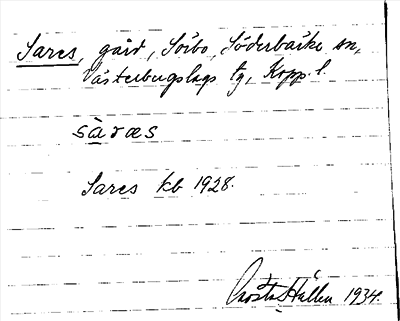 Sares, gård, Söbo, Söderbärke sn,
Västerbergslags tg, Kopp. l.
sàræs
Sares kb 1928.
Gösta Hallen 1934.